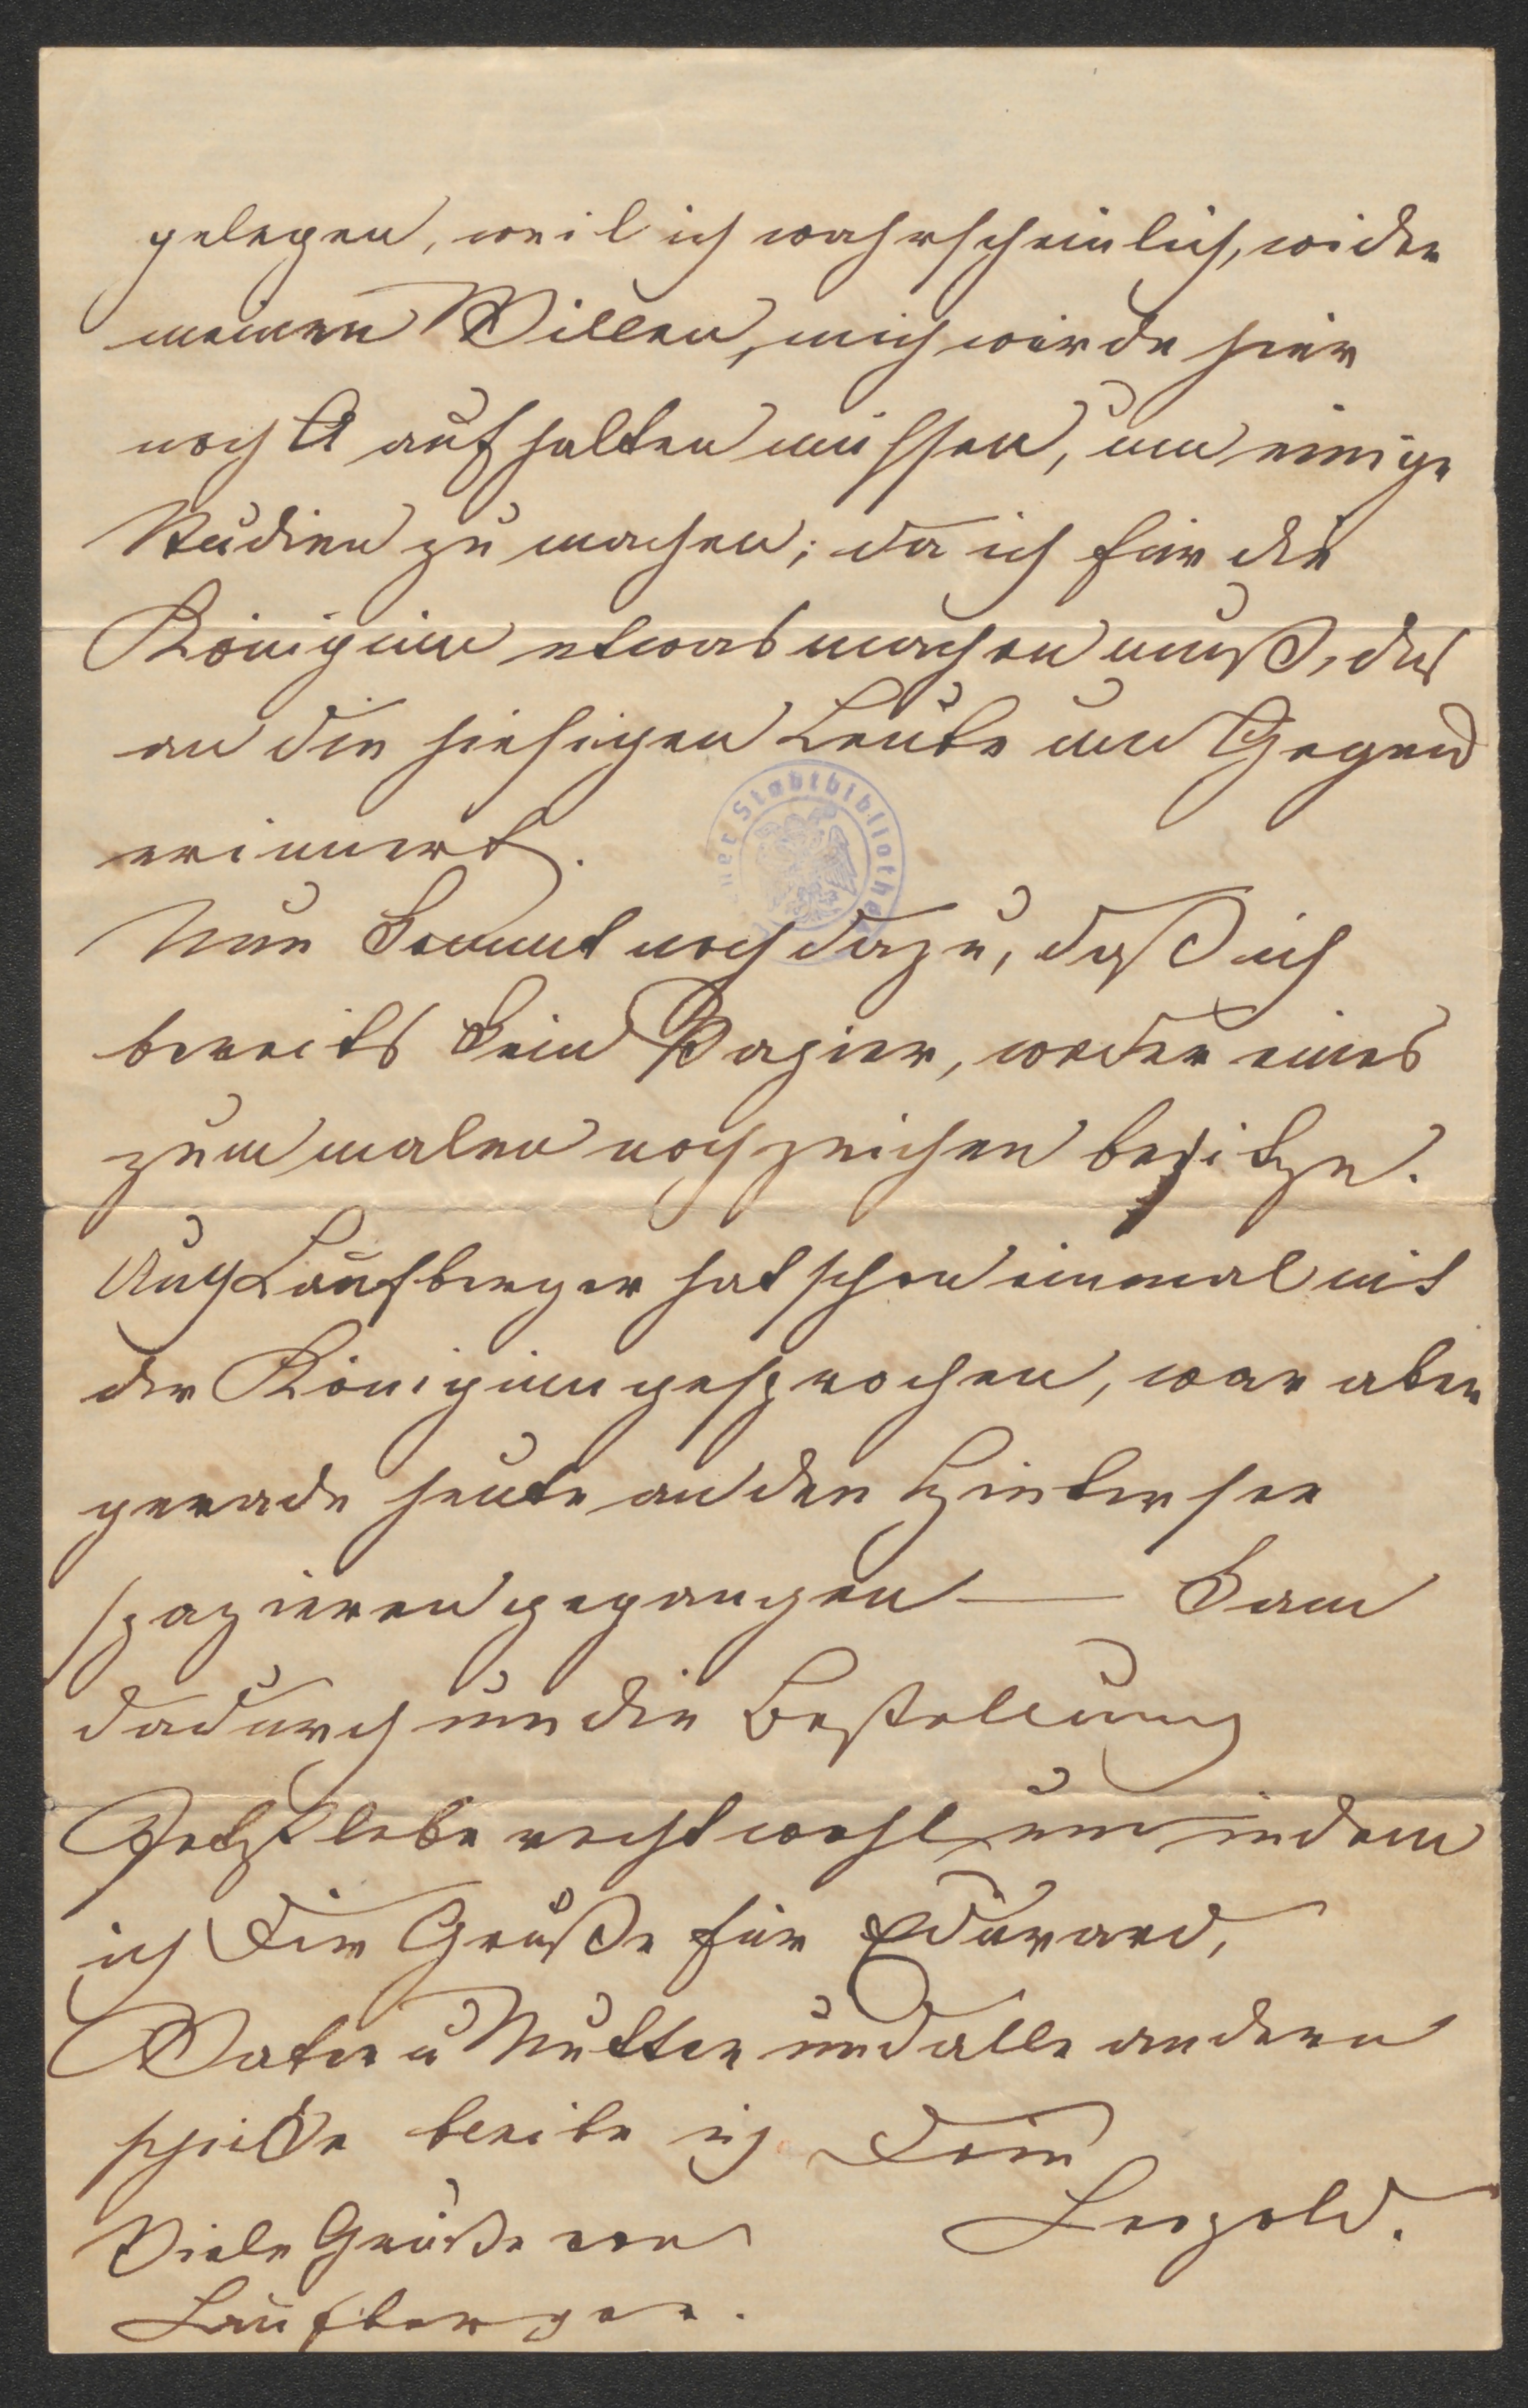 gelegen, weil ich wahrscheinlich, wider
meinen Willen, mich würde hier
noch aufhalten müssen, um einige
Studien zu machen; da ich für die
Königinn etwas machen muß, das
an die hiesigen Leute um Gegend
erinnert.
Nun kommt noch dazu, daß ich
bereits kein Papier, weder eines
zum malen noch zeichen besitze.
Auch Laufberger hat schon einmal mit
der Königinn gesprochen, war aber
gerade heute an den Hintersee
spazieren gegangen — kam
dadurch um die Bestellung
Jetzt lebe recht wohl, und indem
ich Dir Grüße für Eduard,
Vater u Mutter und alle andern
schicke bleibe ich Dein
Leopold.
Viele Grüße von
Laufberger.